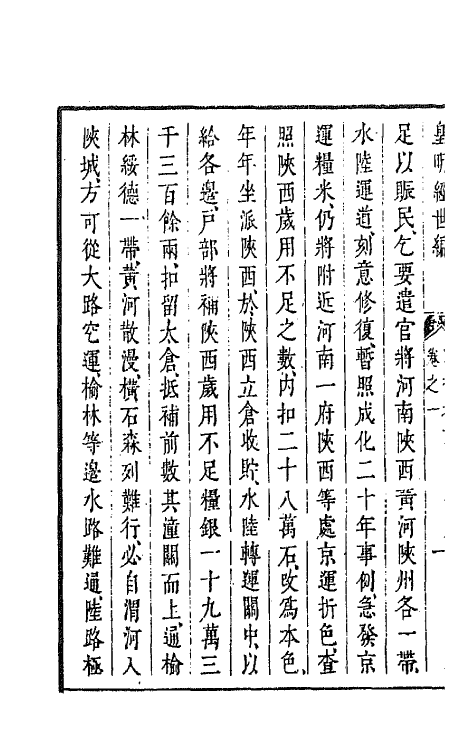 皇明經世編
卷之一
足以賑民、乞要遣官將河南陝西黃河陝州各一帶、
水陸運道、刻意修復、暫照成化二十年事例、急發京
運糧米、仍將附近河南一府陝西等處京運折色、查
照陝西歲用不足之數、內扣二十八萬石、改爲本色、
年年坐派陝西、於陝西立倉收貯、水陸轉運關中、以
給各邊、戶部將補陝西歲用不足糧銀一十九萬三
千三百餘兩、扣留太倉、抵補前數其潼關而上、通榆
林綏德一帶、黃河散漫、橫石森列難行、必自渭河入
陝城、方可從大路空運、榆林等邊水路難通、陸路極